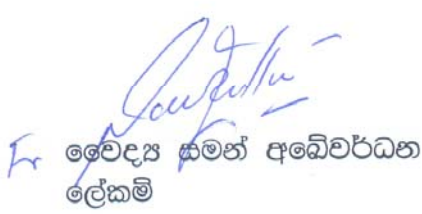 වෛද්‍ය සමන් අබේවර්ධන
ලේකම්